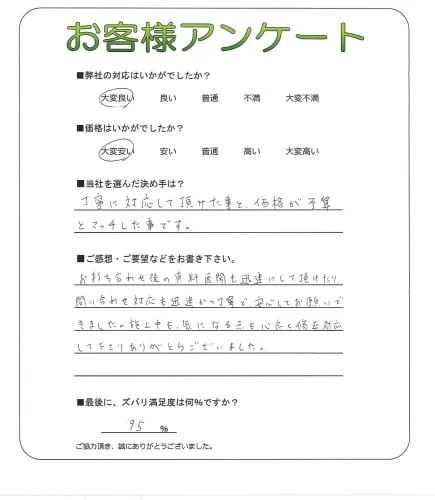 お客様アンケート
■弊社の対応はいかがでしたか？
大変良い 良い 普通 不満 大変不満
■価格はいかがでしたか？
大変安い 安い 普通 高い 大変高い
■当社を選んだ決め手は？
丁寧に対応して頂けた事と、価格が予算
とマッチした事です。
■ご感想・ご要望などをお書き下さい。
お打ち合わせ後の資料展開も迅速にして頂けたり
問い合わせ対応も迅速かつ丁寧で、安心してお願いで
きました。施工中も、気になる点を心良く修正対応
して下さりありがとうございました。
■最後に、ズバリ満足度は何%ですか？
95 %
ご協力頂き、誠にありがとうございました。